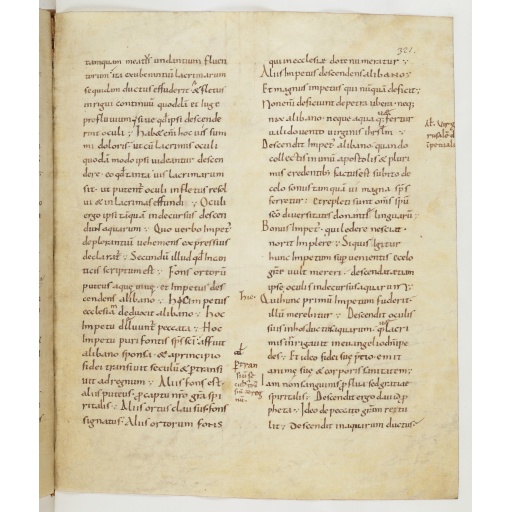 321.
tamquam meatus undantium fluen
torum ita exuberantium lacrimarum
sequidam ductus effuderit & fletus
inriguis continuum quoddam et iuge
profluuium sive qd ipsi descende
rint oculi
mi doloris ut cum lacrimis oculi
quodam modo ipsi uidantur descen
dere eo qd tanta uis lacrimarum
sit ut putent oculi in fletus resol
ui & in lacrimas effundi Oculi
ergo ipsi tamquam in decursus descen
dunt aquarum Quo verbo impet
deplorantium uehemens expressius
declarat Secundum illud qd in can
ticis scriptum est Fons ortorum
puteus aquae uiuae et impetus des
cendens a libano Hoc impetus
ecclesiam deduxit a libano Hoc
impetu diluunt peccata Hoc
impetu puri fontis sps sci affluit
a libano sponsa & a principio
fidei transiuit seculum & ptransi
uit ad regnum Alius fons est
alius puteus gra spi
ritalis Alius ortus clausus fons
signatus Alius ortorum fons
qui in ecclesiae dote numeratur
Alius impetus descendens a libano
Et magnus impetus qui numquam deficit
Non enim deficiunt de petra ubera neq
nix a libano neque aqua q fertur
ualido uento
Descendit impet a libano quando
collectis in unum apostolis & pluri
mis credentib factus est subito de
celo sonus tamquam ui magna sps
ferretur Et repleti sunt oms spu
sco diuersitatis donantis linguarum
Bonus impet qui lodere nesciat
norit implere Si quis igitur
hunc impetum supuenientis ecele
gratie uult mereri descendat etiam
ipse oculis in decursus aquarum
Qui hunc primum impetum fuderit
illum merebitur Descendit oculis
suis in hos ductus aquarum q lacri
mis inrigauit me angelio dni pe
des Et ideo fidei sue pretio emit
animae sue & corporis sanitatem
Iam non sanguinis pflua sed gratiae
spiritalis Descendit ergo dauid p
pheta Ideo de peccato gram retu
lit Descendit in aquarum ductus
hic
ptran
siuit se